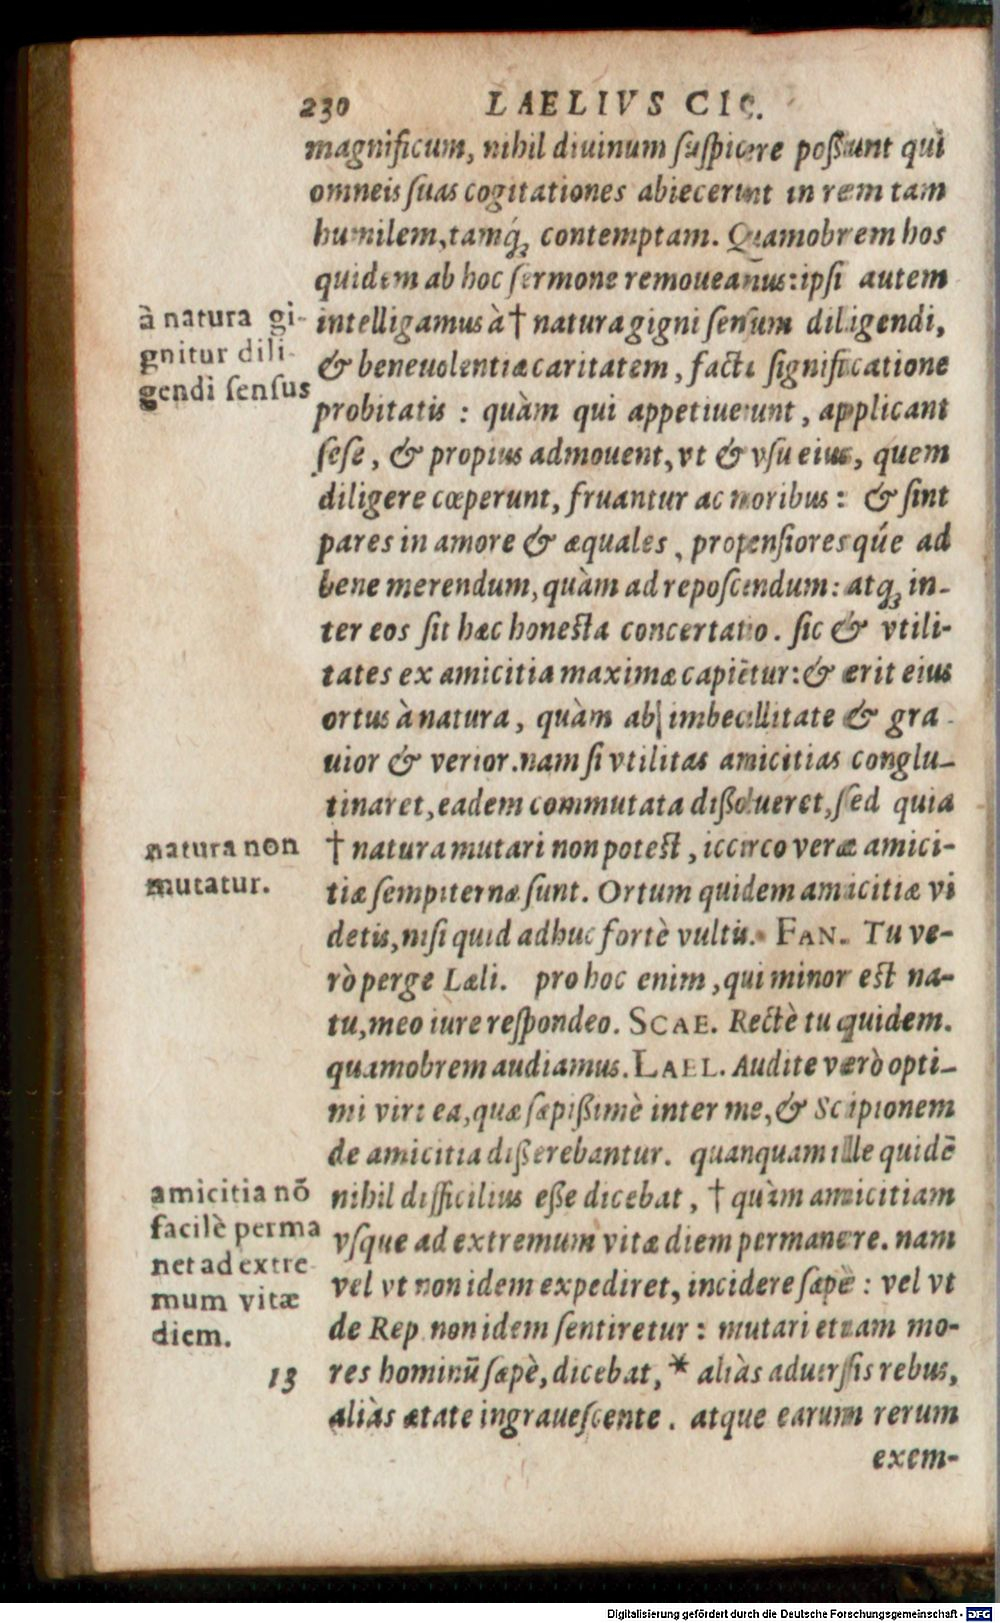 230 LAELIVS CIC.
magnificum, nihil diuinum suspicere possunt qui
omneis suas cogitationes abiecerunt in rem tam
humilem, tamq́ꝫ contemptam. Quamobrem hos
quidem ab hoc sermone remoueamus: ipsi autem
à natura gi-
gnitur dili-
gendi sensus
intelligamus à † natura gigni sensum diligendi,
& beneuolentiæ caritatem, facta significatione
probitatis : quàm qui appetiuerunt, applicant
sese, & propius admouent, vt & vsu eius, quem
diligere cœperunt, fruantur ac moribus : & sint
pares in amore & æquales, propensioresq́ue ad
bene merendum, quàm ad reposcendum: atqꝫ in-
ter eos sit hæc honesta concertatio. sic & vtili-
tates ex amicitia maximæ capiētur: & erit eius
ortus à natura, quàm ab imbecillitate & gra
uior & verior. nam si vtilitas amicitias conglu-
tinaret, eadem commutata dissolueret, sed quia
natura non
mutatur.
† natura mutari non potest, iccirco veræ amici-
tiæ sempiternæ sunt. Ortum quidem amicitiæ vi
detis, nisi quid adhuc fortè vultis. FAN. Tu ve-
rò perge Læli. pro hoc enim, qui minor est na-
tu, meo iure respondeo. SCAE. Rectè tu quidem.
quamobrem audiamus. LAEL. Audite verò opti-
mi viri ea, quæ sæpissimè inter me, & Scipionem
de amicitia disserebantur. quanquam ille quidē
amicitia nō
facilè perma
net ad extre
mum vitæ
diem.
nihil difficilius esse dicebat, † quàm amicitiam
vsque ad extremum vitæ diem permanere. nam
vel vt non idem expediret, incidere sæpè : vel vt
de Rep. non idem sentiretur : mutari etiam mo-
13 res hominū sæpè, dicebat, * aliàs aduersis rebus,
aliàs ætate ingrauescente. atque earum rerum
exem-
Digitalisierung gefördert durch die Deutsche Forschungsgemeinschaft - DFG